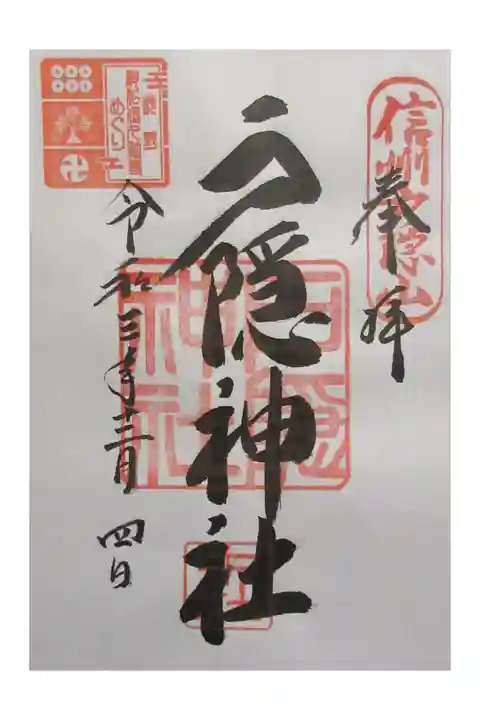 信州戸隠山
奉拝
戸隠神社
戸隠神社
令和三年十二月 四日
めぐり